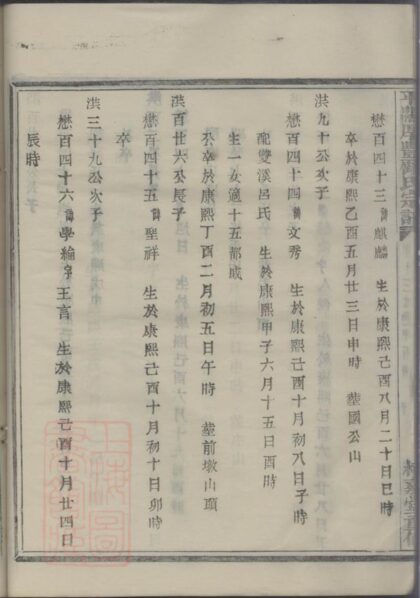 懋百四十三諱麒麟 生於康熙己酉八月二十日巳時
卒於康熙乙酉五月廿三日申時 塟國公山
洪九十公次子
懋百四十四諱文秀 生於康熙己酉十月初八日子時
配雙溪呂氏 生於康熙甲子六月十五日酉時
生一女適十五都成
公卒於康熙丁酉二月初五日午時 塟前墩山頭
洪百廿六公長子
懋百四十五諱聖祥 生於康熙己酉十月初十日卯時
卒
洪三十九公次子
懋百四十六諱學綸字王言 生於康熙己酉十月廿四日
辰時